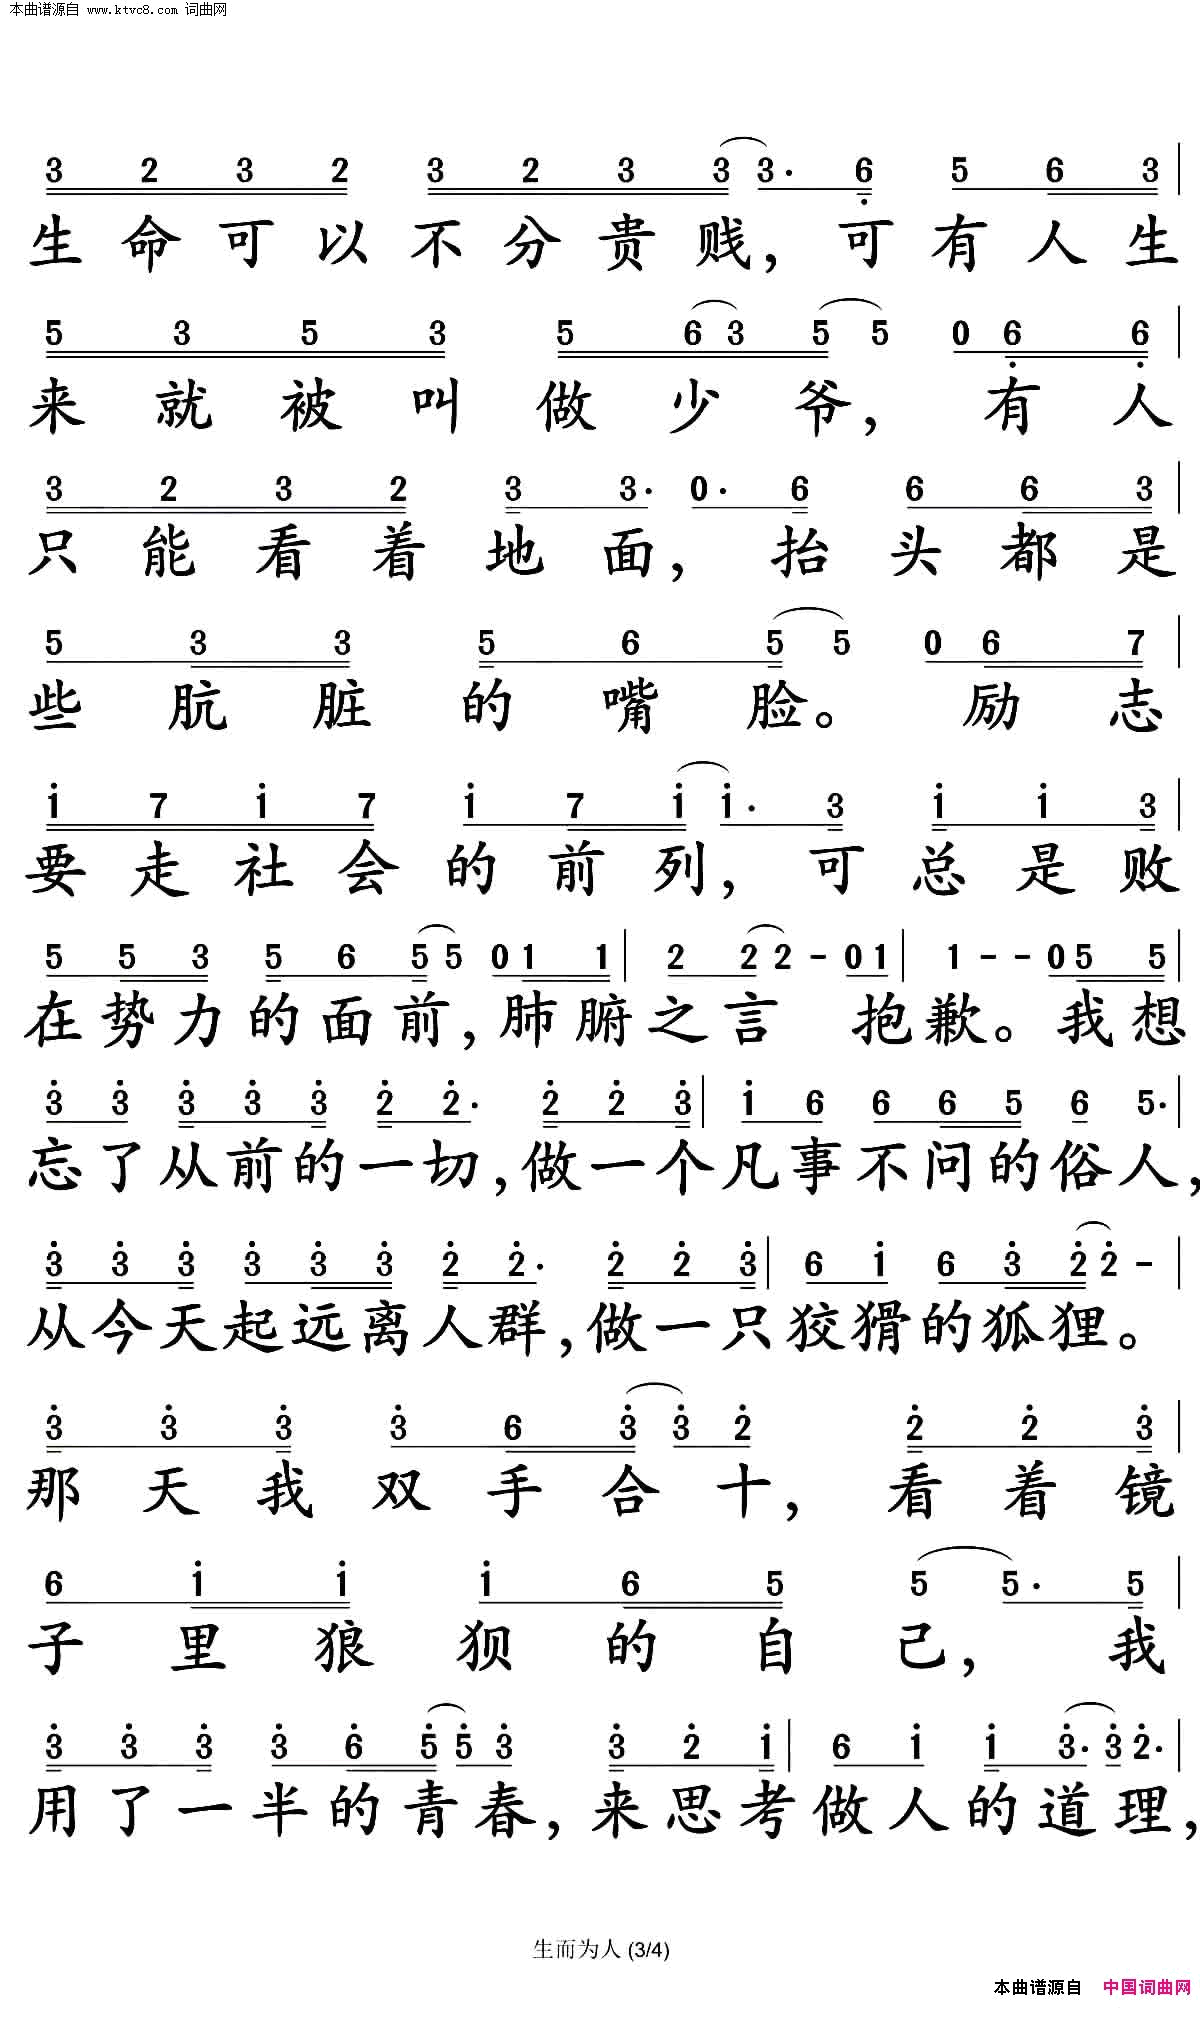 本曲谱源自 www.ktvc8.com 词曲网
3 2 3 2 3 2 3 3 3. 6 5 6 3
生命可以不分贵贱，可有人生
5 3 5 3 5 6 3 5 5 0 6 6
来就被叫做少爷，有人
3 2 3 2 3 3. 0. 6 6 6 3
只能看着地面，抬头都是
5 3 3 5 6 5 5 0 6 7
些肮脏的嘴脸。励志
1 7 1 7 1 7 1 1. 3 1 1 3
要走社会的前列，可总是败
5 5 3 5 6 5 5 0 1 1 2 2 2 - 0 1 1 - - 0 5 5
在势力的面前，肺腑之言 抱歉。我想
3 3 3 3 3 2 2. 2 2 3 1 6 6 6 5 6 5.
忘了从前的一切，做一个凡事不问的俗人，
3 3 3 3 3 3 2 2. 2 2 3 6 1 6 3 2 2 -
从今天起远离人群，做一只狡猾的狐狸。
3 3 3 3 6 3 3 2 2 2 3
那天我双手合十，看着镜
6 1 1 1 6 5 5 5. 5
子里狼狈的自己，我
3 3 3 3 6 5 5 3 3 2 1 6 1 1 3. 3 2.
用了一半的青春，来思考做人的道理，
生而为人 (3/4)
本曲谱源自 中国词曲网